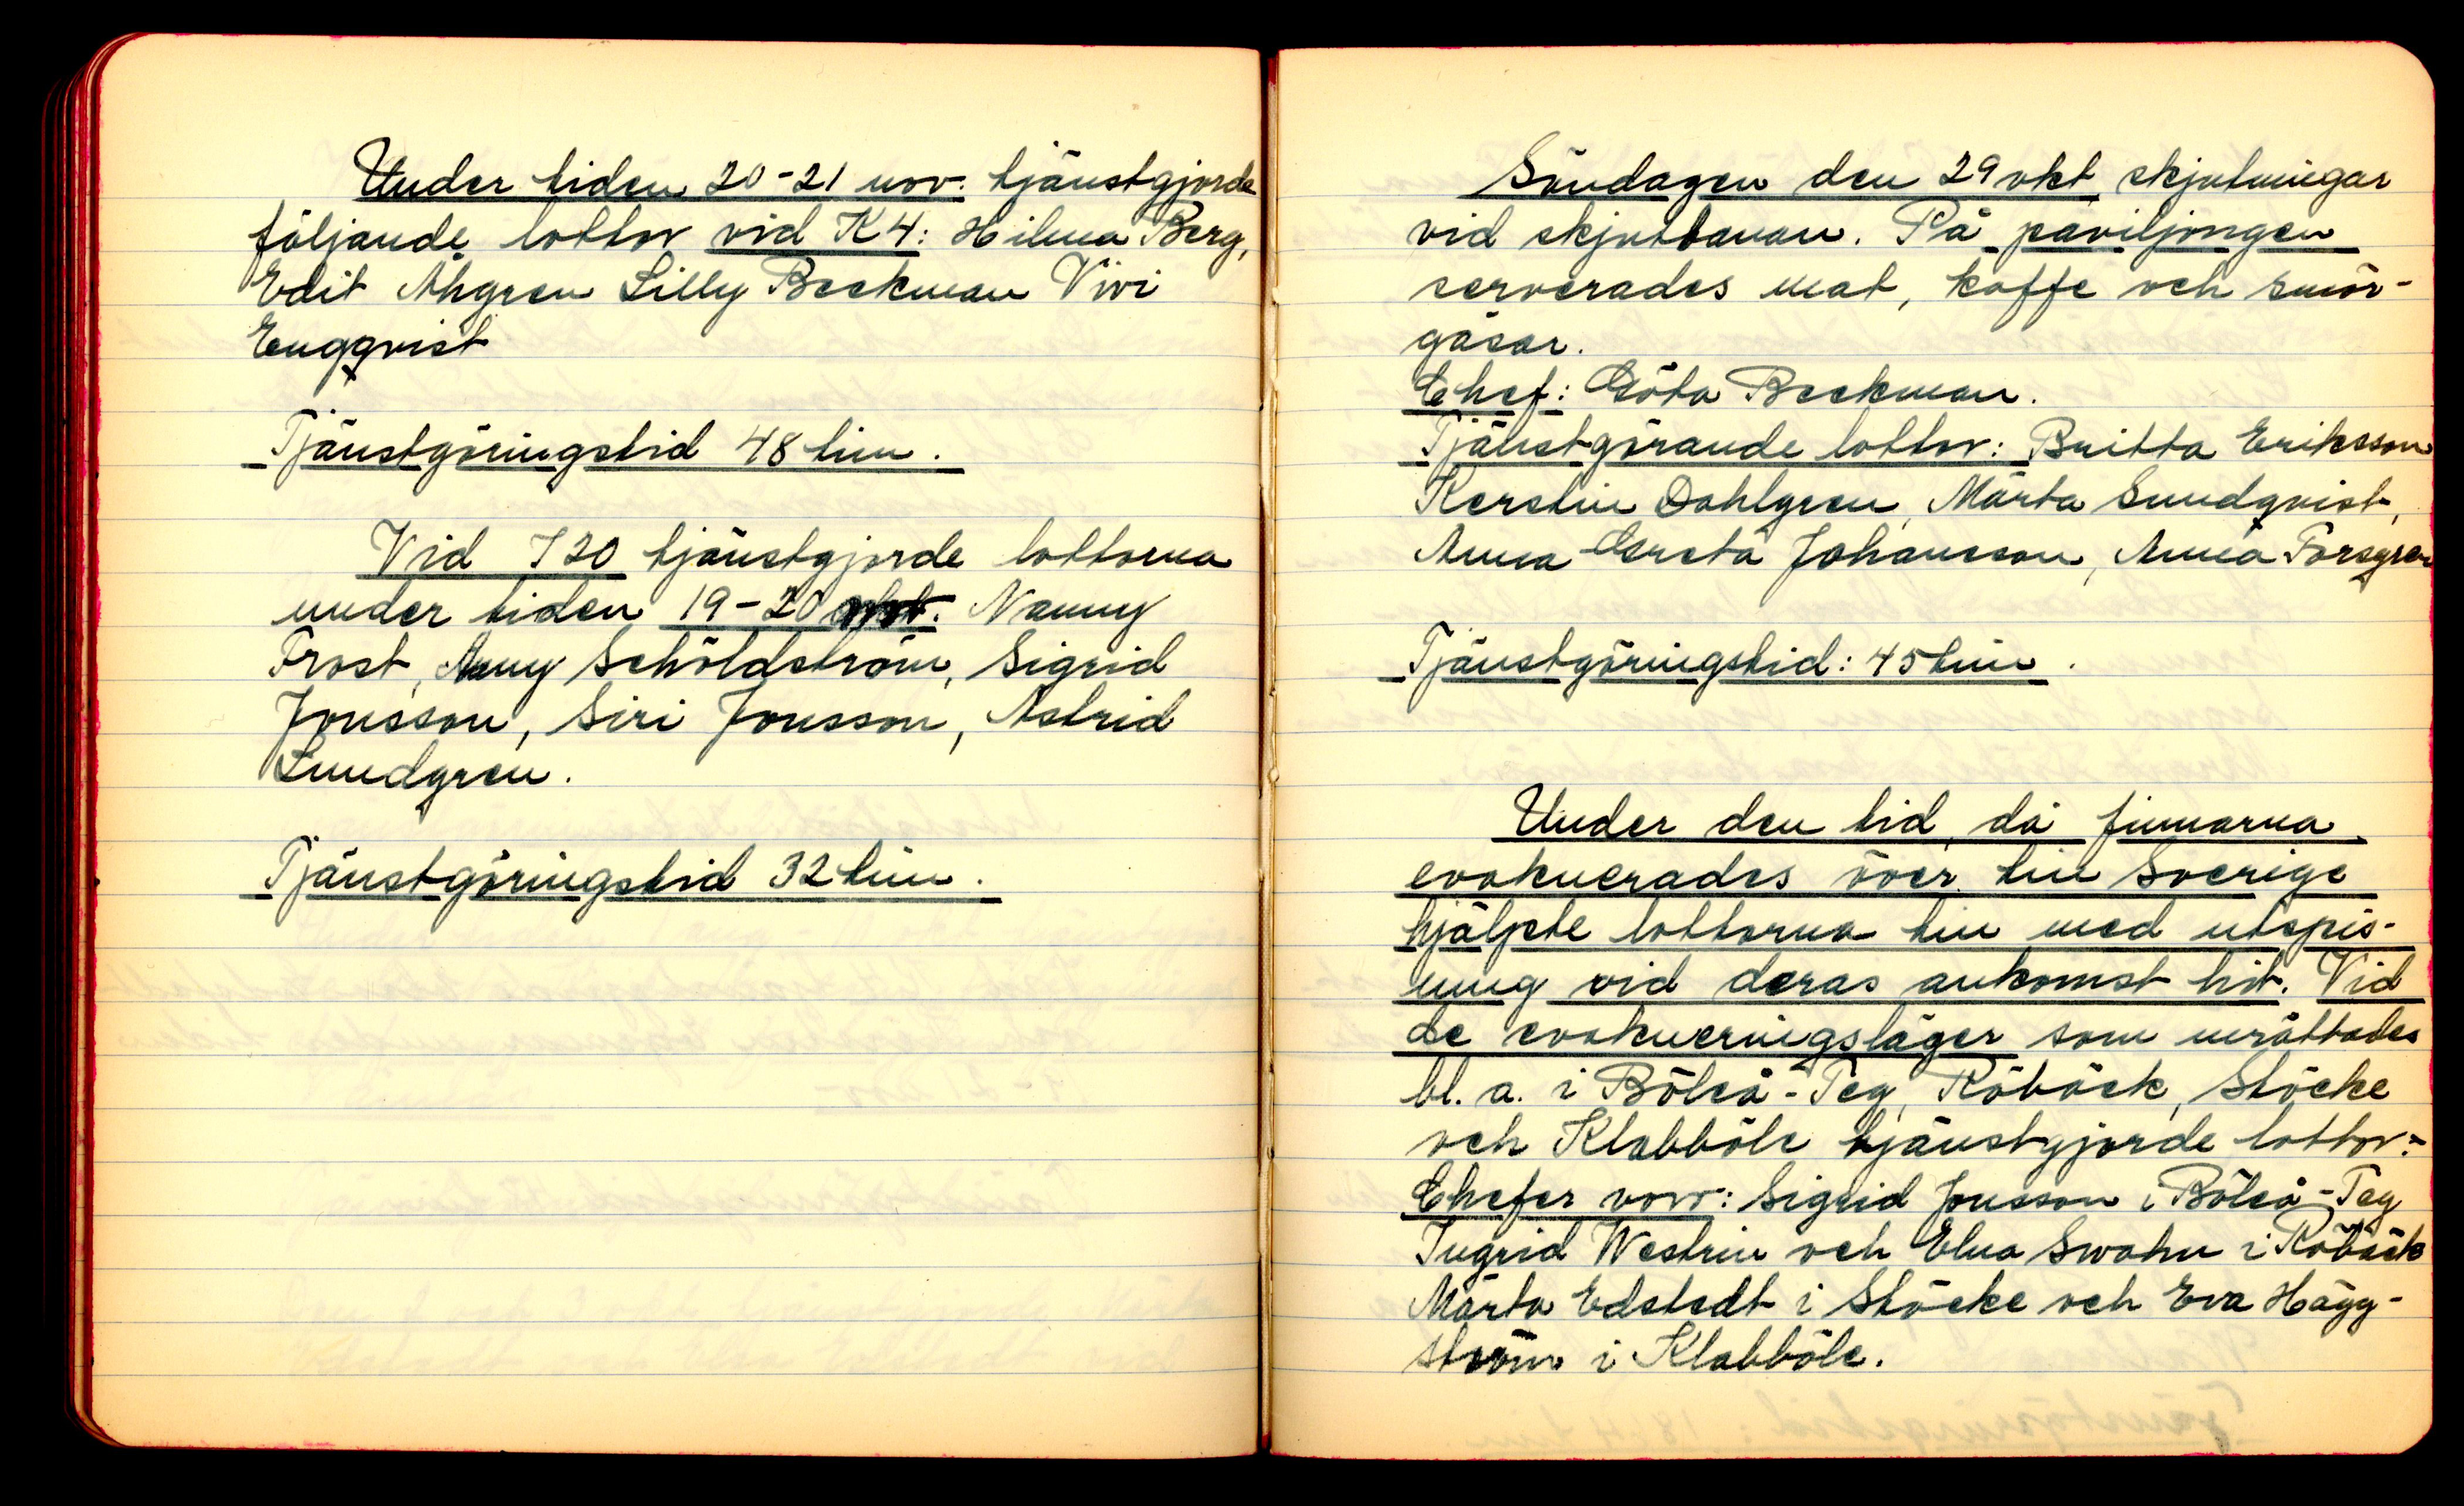 Under tiden 20-21 nov. tjänstgjorde
följande lottor vid K4: Hilma Berg,
Edit Åhgren Lilly Beckman Vivi
Engqvist
Tjänstgöringstid 48 tim.
Vid I20 tjänstgjorde lottorna
under tiden 19-20 Nanny
Frost, Anny Schöldström, Sigrid
Jonsson, Siri Jonsson, Astrid
Lundgren.
Tjänstgöringstid 32 tim.
Söndagen den 29 okt skjutningar
vid skjutbanan. På paviljongen
serverades mat, kaffe och smör-
gåsar.
Chef: Göta Beckman.
Tjänstgörande lottor: Britta Eriksson
Kerstin Dahlgren, Märta Sundqvist,
Anna Greta Johansson, Anna Forsgren
Tjänstgöringstid: 45 tim.
Under den tid, då finnarna
evakuerades över till Sverige
hjälpte lottorna till med utspis-
ning vid deras ankomst hit. Vid
de evakueringsläger som inrättades
bl. a. i Böleå-Teg, Röbäck, Stöcke
och Klabböle tjänstgjorde lottor:-
Chefer voro: Sigrid Jonsson i Böleå-Teg
Ingrid Westrin och Elna Swahn i Röbäck
Märta Edstedt i Stöcke och Eva Hägg-
ström i Klabböle.